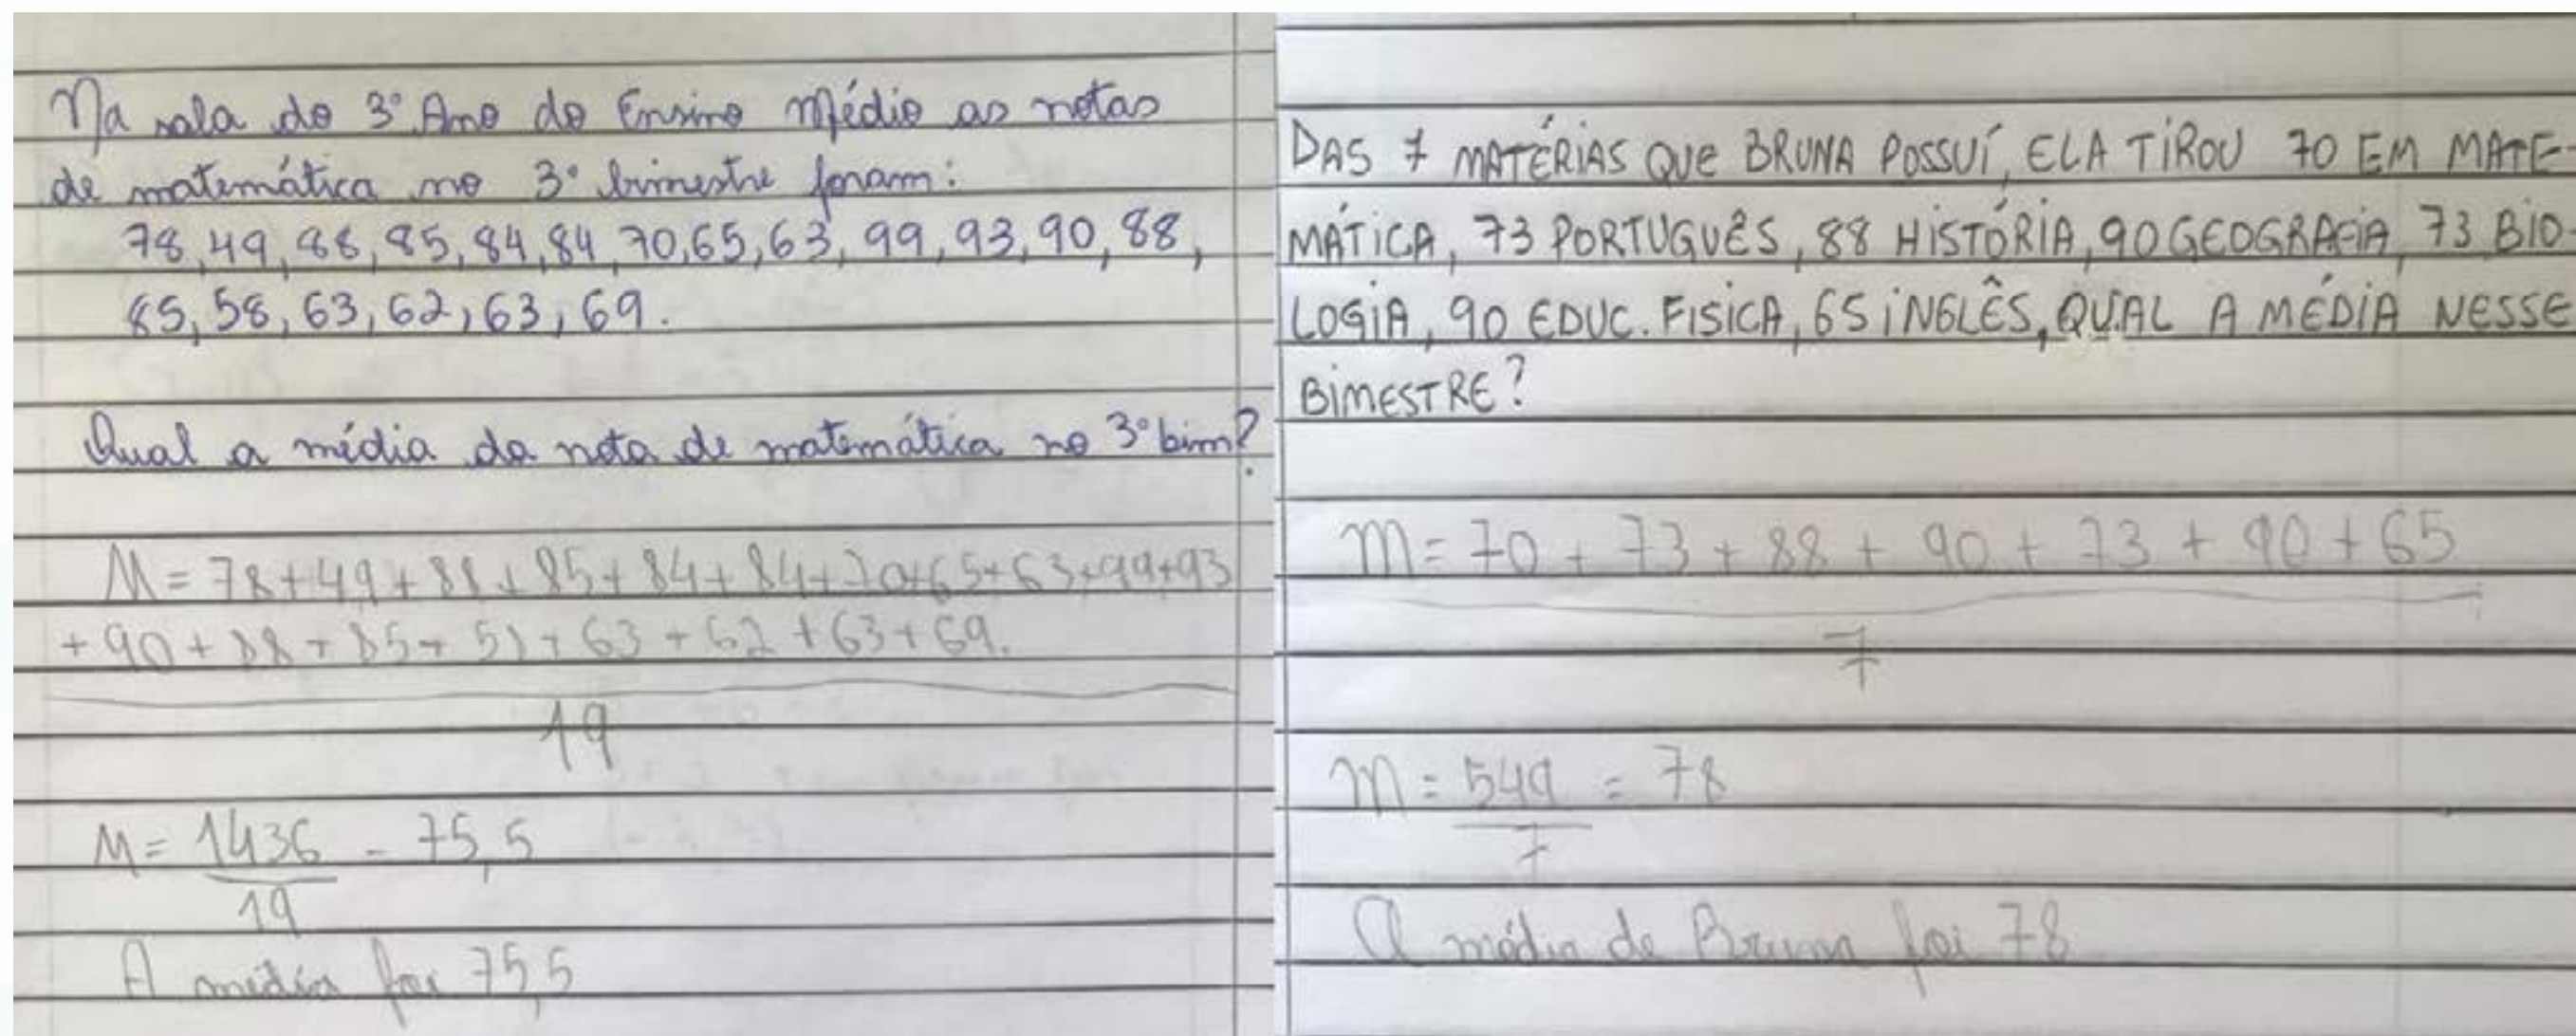 Na sala do 3º Ano do Ensino Médio as notas
de matemática no 3º bimestre foram:
78, 49, 88, 85, 84, 84, 70, 65, 63, 99, 93, 90, 88,
85, 58, 63, 62, 63, 69.
Qual a média da nota de matemática no 3º bim?
M = 78+49+88+85+84+84+70+65+63+99+93
+90+88+85+58+63+62+63+69.
19
M = 1436 = 75,5
19
A média foi 75,5
DAS 7 MATÉRIAS QUE BRUNA POSSUÍ, ELA TIROU 70 EM MATE-
MÁTICA, 73 PORTUGUÊS, 88 HISTÓRIA, 90 GEOGRAFIA, 73 BIO-
LOGIA, 90 EDUC. FISICA, 65 INGLÊS, QUAL A MÉDIA NESSE
BIMESTRE?
M = 70 + 73 + 88 + 90 + 73 + 90 + 65
7
M = 549 = 78
7
A média de Bruna foi 78